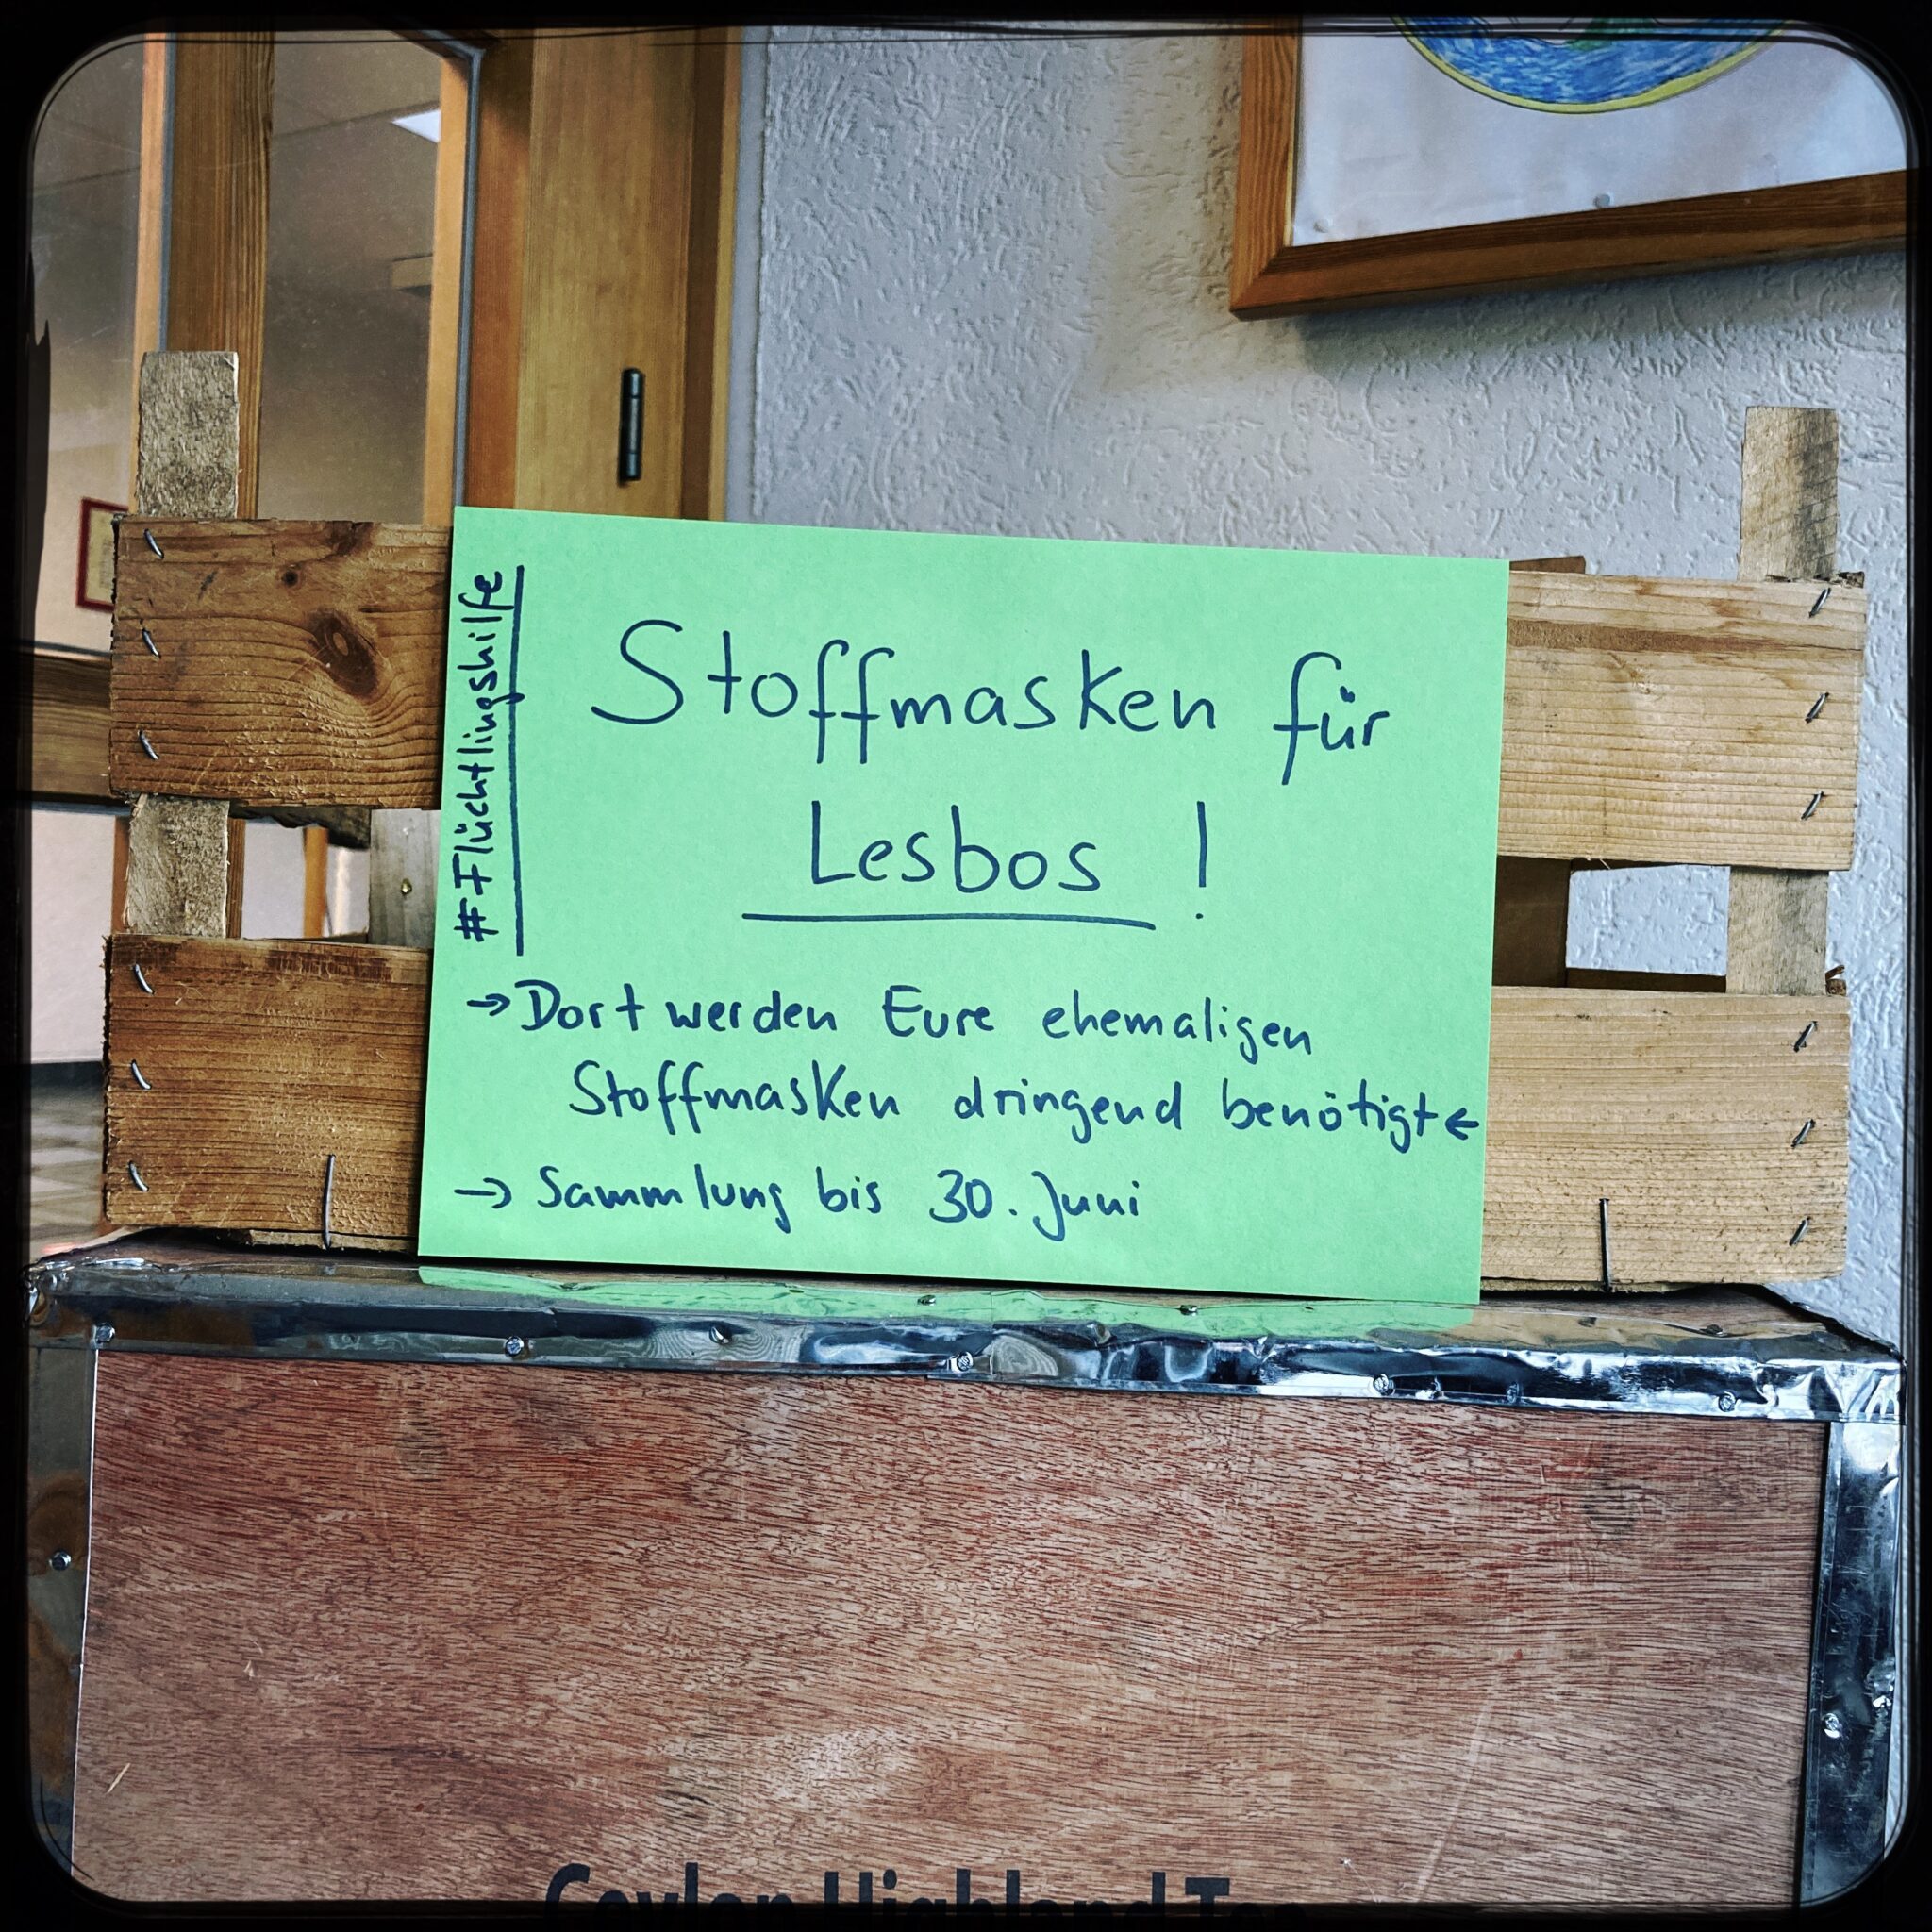 #Flüchtlingshilfe
Stoffmasken für
Lesbos !
→ Dort werden Eure ehemaligen
Stoffmasken dringend benötigt ←
→ Sammlung bis 30. Juni
Ceylon Highland Tea